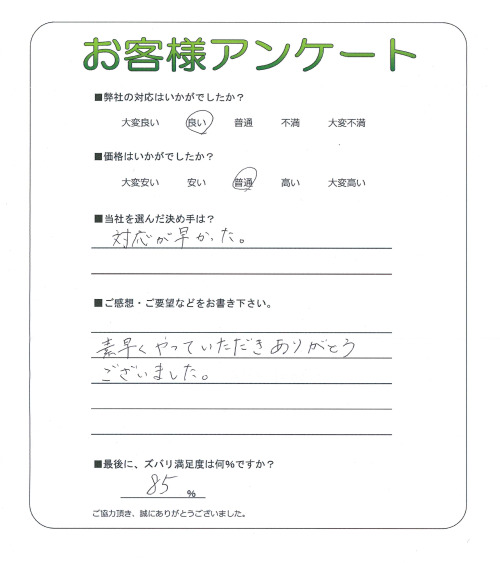 お客様アンケート
■弊社の対応はいかがでしたか？
大変良い 良い 普通 不満 大変不満
■価格はいかがでしたか？
大変安い 安い 普通 高い 大変高い
■当社を選んだ決め手は？
対応が早かった。
■ご感想・ご要望などをお書き下さい。
素早くやっていただきありがとう
ございました。
■最後に、ズバリ満足度は何%ですか？
85 %
ご協力頂き、誠にありがとうございました。